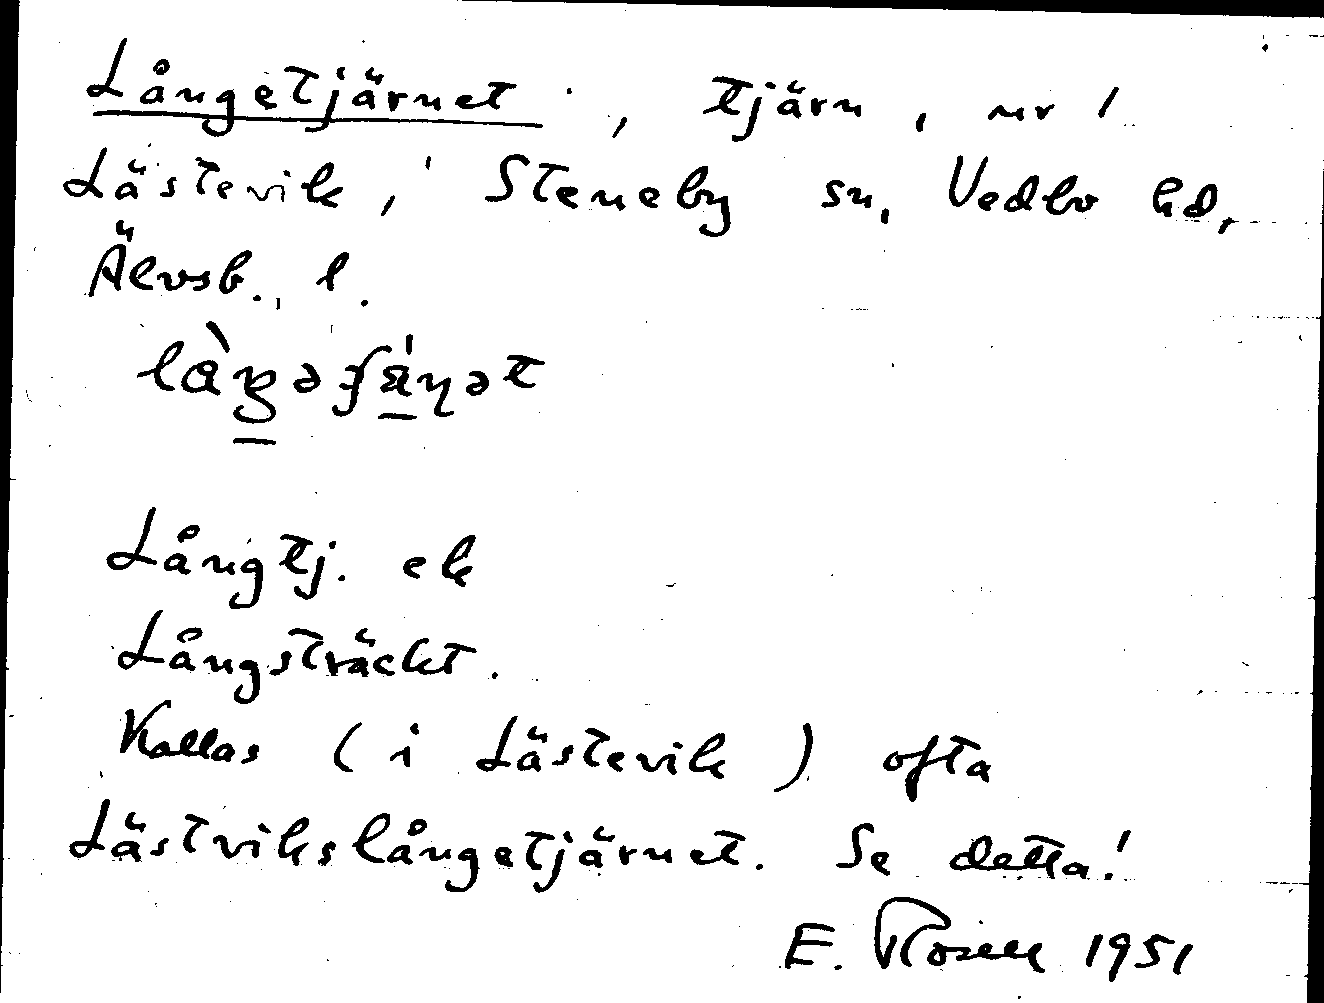 Långetjärnet, tjärn, nr 1
Lästevik, Steneby sn, Vedbo hd,
Älvsb. l.
Långtj. ek
Långsträckt.
Kallas (i Lästevik) ofta
Lästvikslångetjärnet. Se detta!
E. Rosell 1951